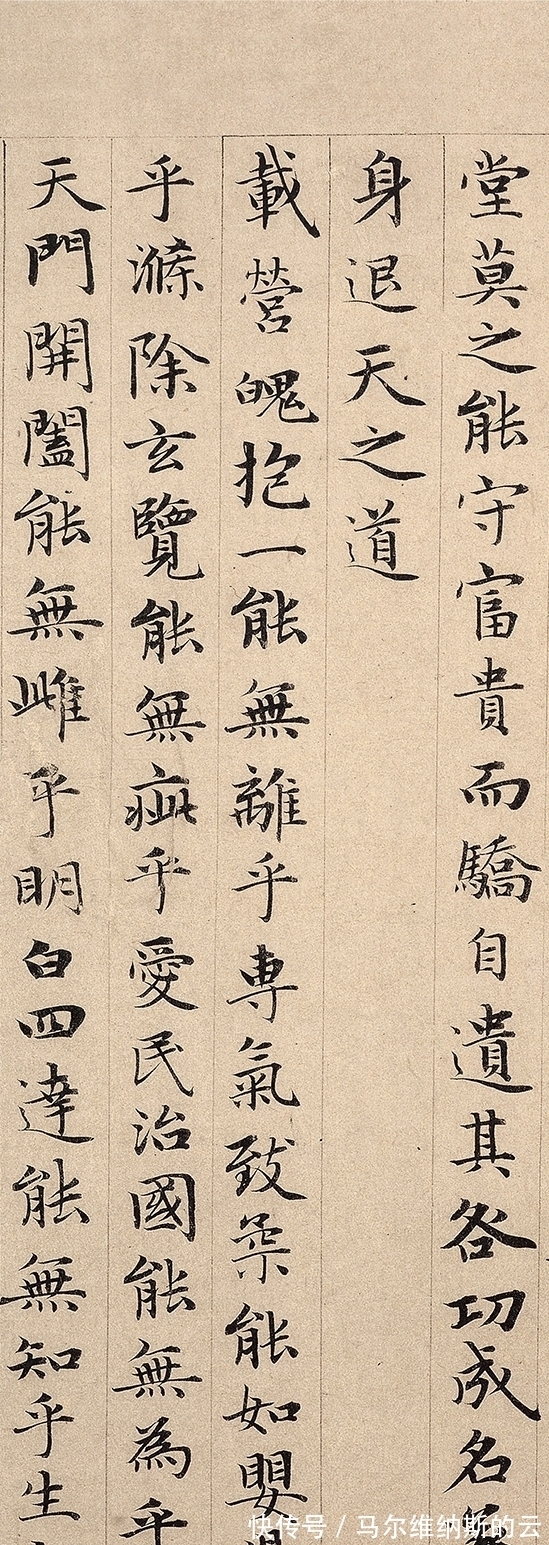 堂莫之能守富貴而驕自遺其咎功成名
身退天之道
載營魄抱一能無離乎専氣致柔能如嬰
乎滌除玄覽能無疵乎愛民治國能無為乎
天門開闔能無雌乎明白四達能無知乎生
快传号 / 马尔维纳斯的云